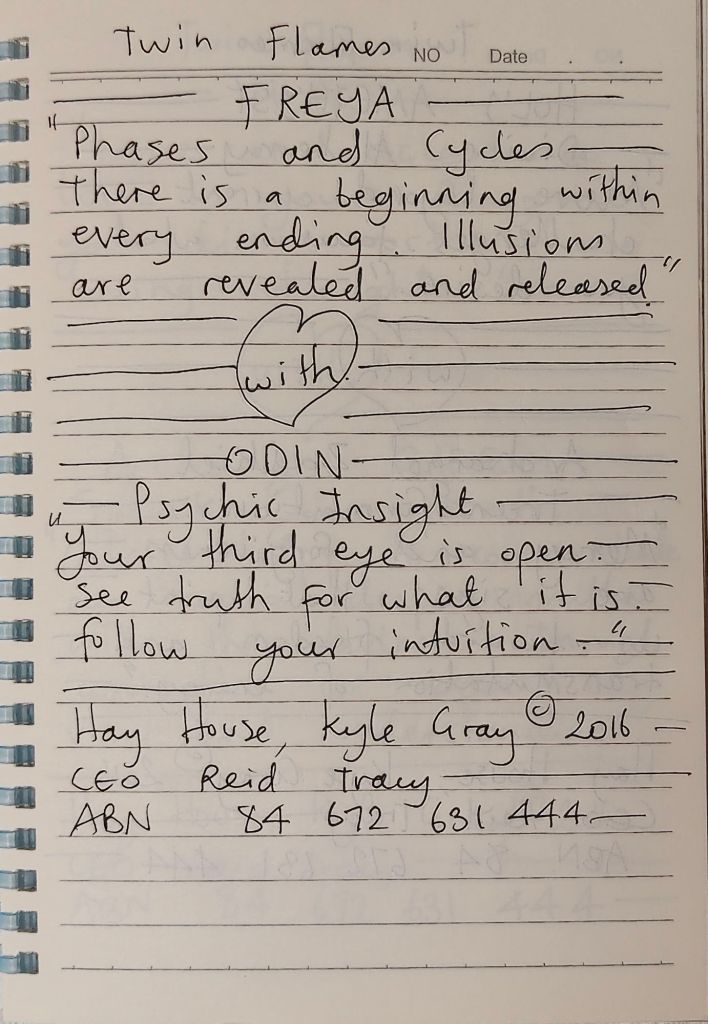 Twin Flames NO Date . .
FREYA
"Phases and Cycles
there is a beginning within
every ending. Illusions
are revealed and released."
with
ODIN
Psychic Insight
"Your third eye is open.
See truth for what it is.
follow your intuition."
Hay House, Kyle Gray © 2016
CEO Reid Tracy
ABN 84 672 631 444